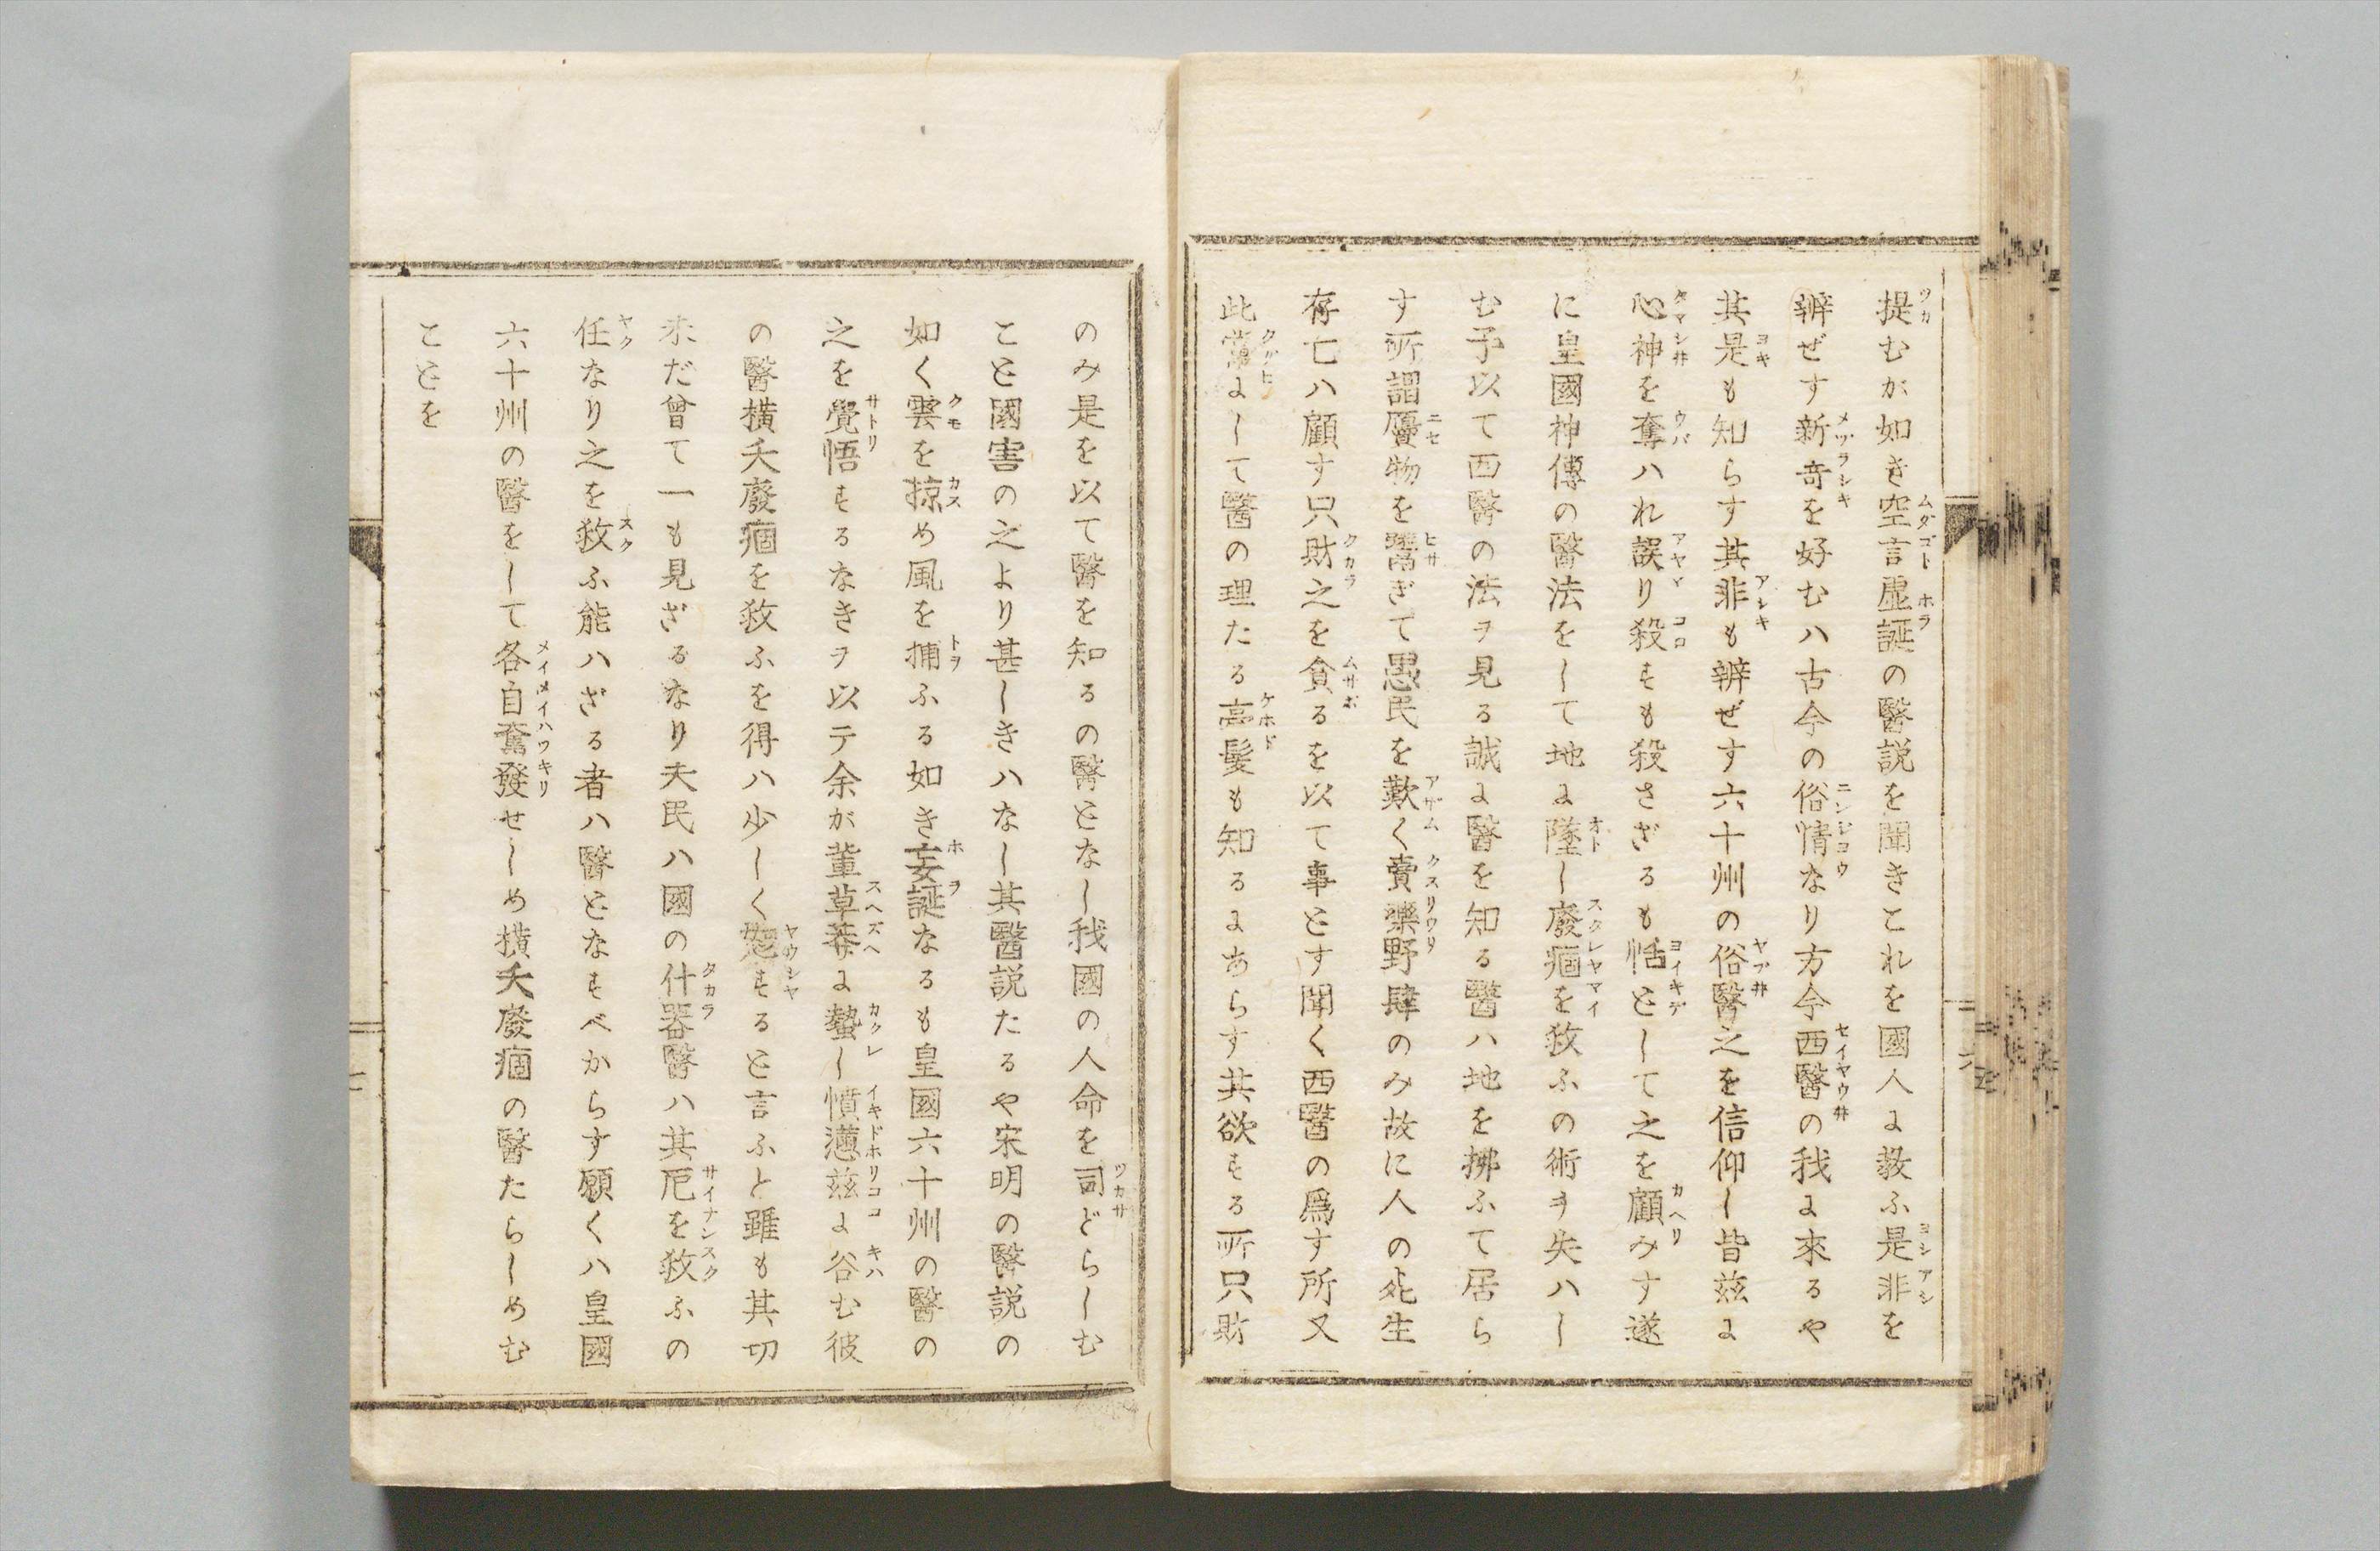 提むが如き空言虚誕の醫説を聞きこれを國人に教ふ是非を
辨ぜす新奇を好むハ古今の俗情なり方今西醫の我に來るや
其是も知らす其非も辨ぜす六十州の俗醫之を信仰し皆玆に
心神を奪ハれ誤り殺すも殺さざるも恬として之を顧みす遂
に皇國神傳の醫法をして地に墜し廢痼を救ふの術ヲ失ハし
む予以て西醫の法ヲ見る誠に醫を知る醫ハ地を拂ふて居ら
す所謂贋物を鬻ぎて愚民を欺く賣藥野肆のみ故に人の死生
存亡ハ顧す只財之を貪るを以て事とす聞く西醫の爲す所又
此黨にして醫の理たる高髮も知るにあらす其欲する所只財
のみ是を以て醫を知るの醫となし我國の人命を司どらしむ
こと國害の之より甚しきハなし其醫説たるや宋明の醫説の
如く雲を掠め風を捕ふる如き妄誕なるも皇國六十州の醫の
之を覺悟するなきヲ以テ余が董草莽に蟄し憤懣玆に谷む彼
の醫横夭廢痼を救ふを得ハ少しく恕すると言ふと雖も其切
未だ曾て一も見ざるなり夫民ハ國の什器醫ハ其厄を救ふの
任なり之を救ふ能ハざる者ハ醫となすべからす願くハ皇國
六十州の醫をして各自奮發せしめ横夭廢痼の醫たらしめむ
ことを